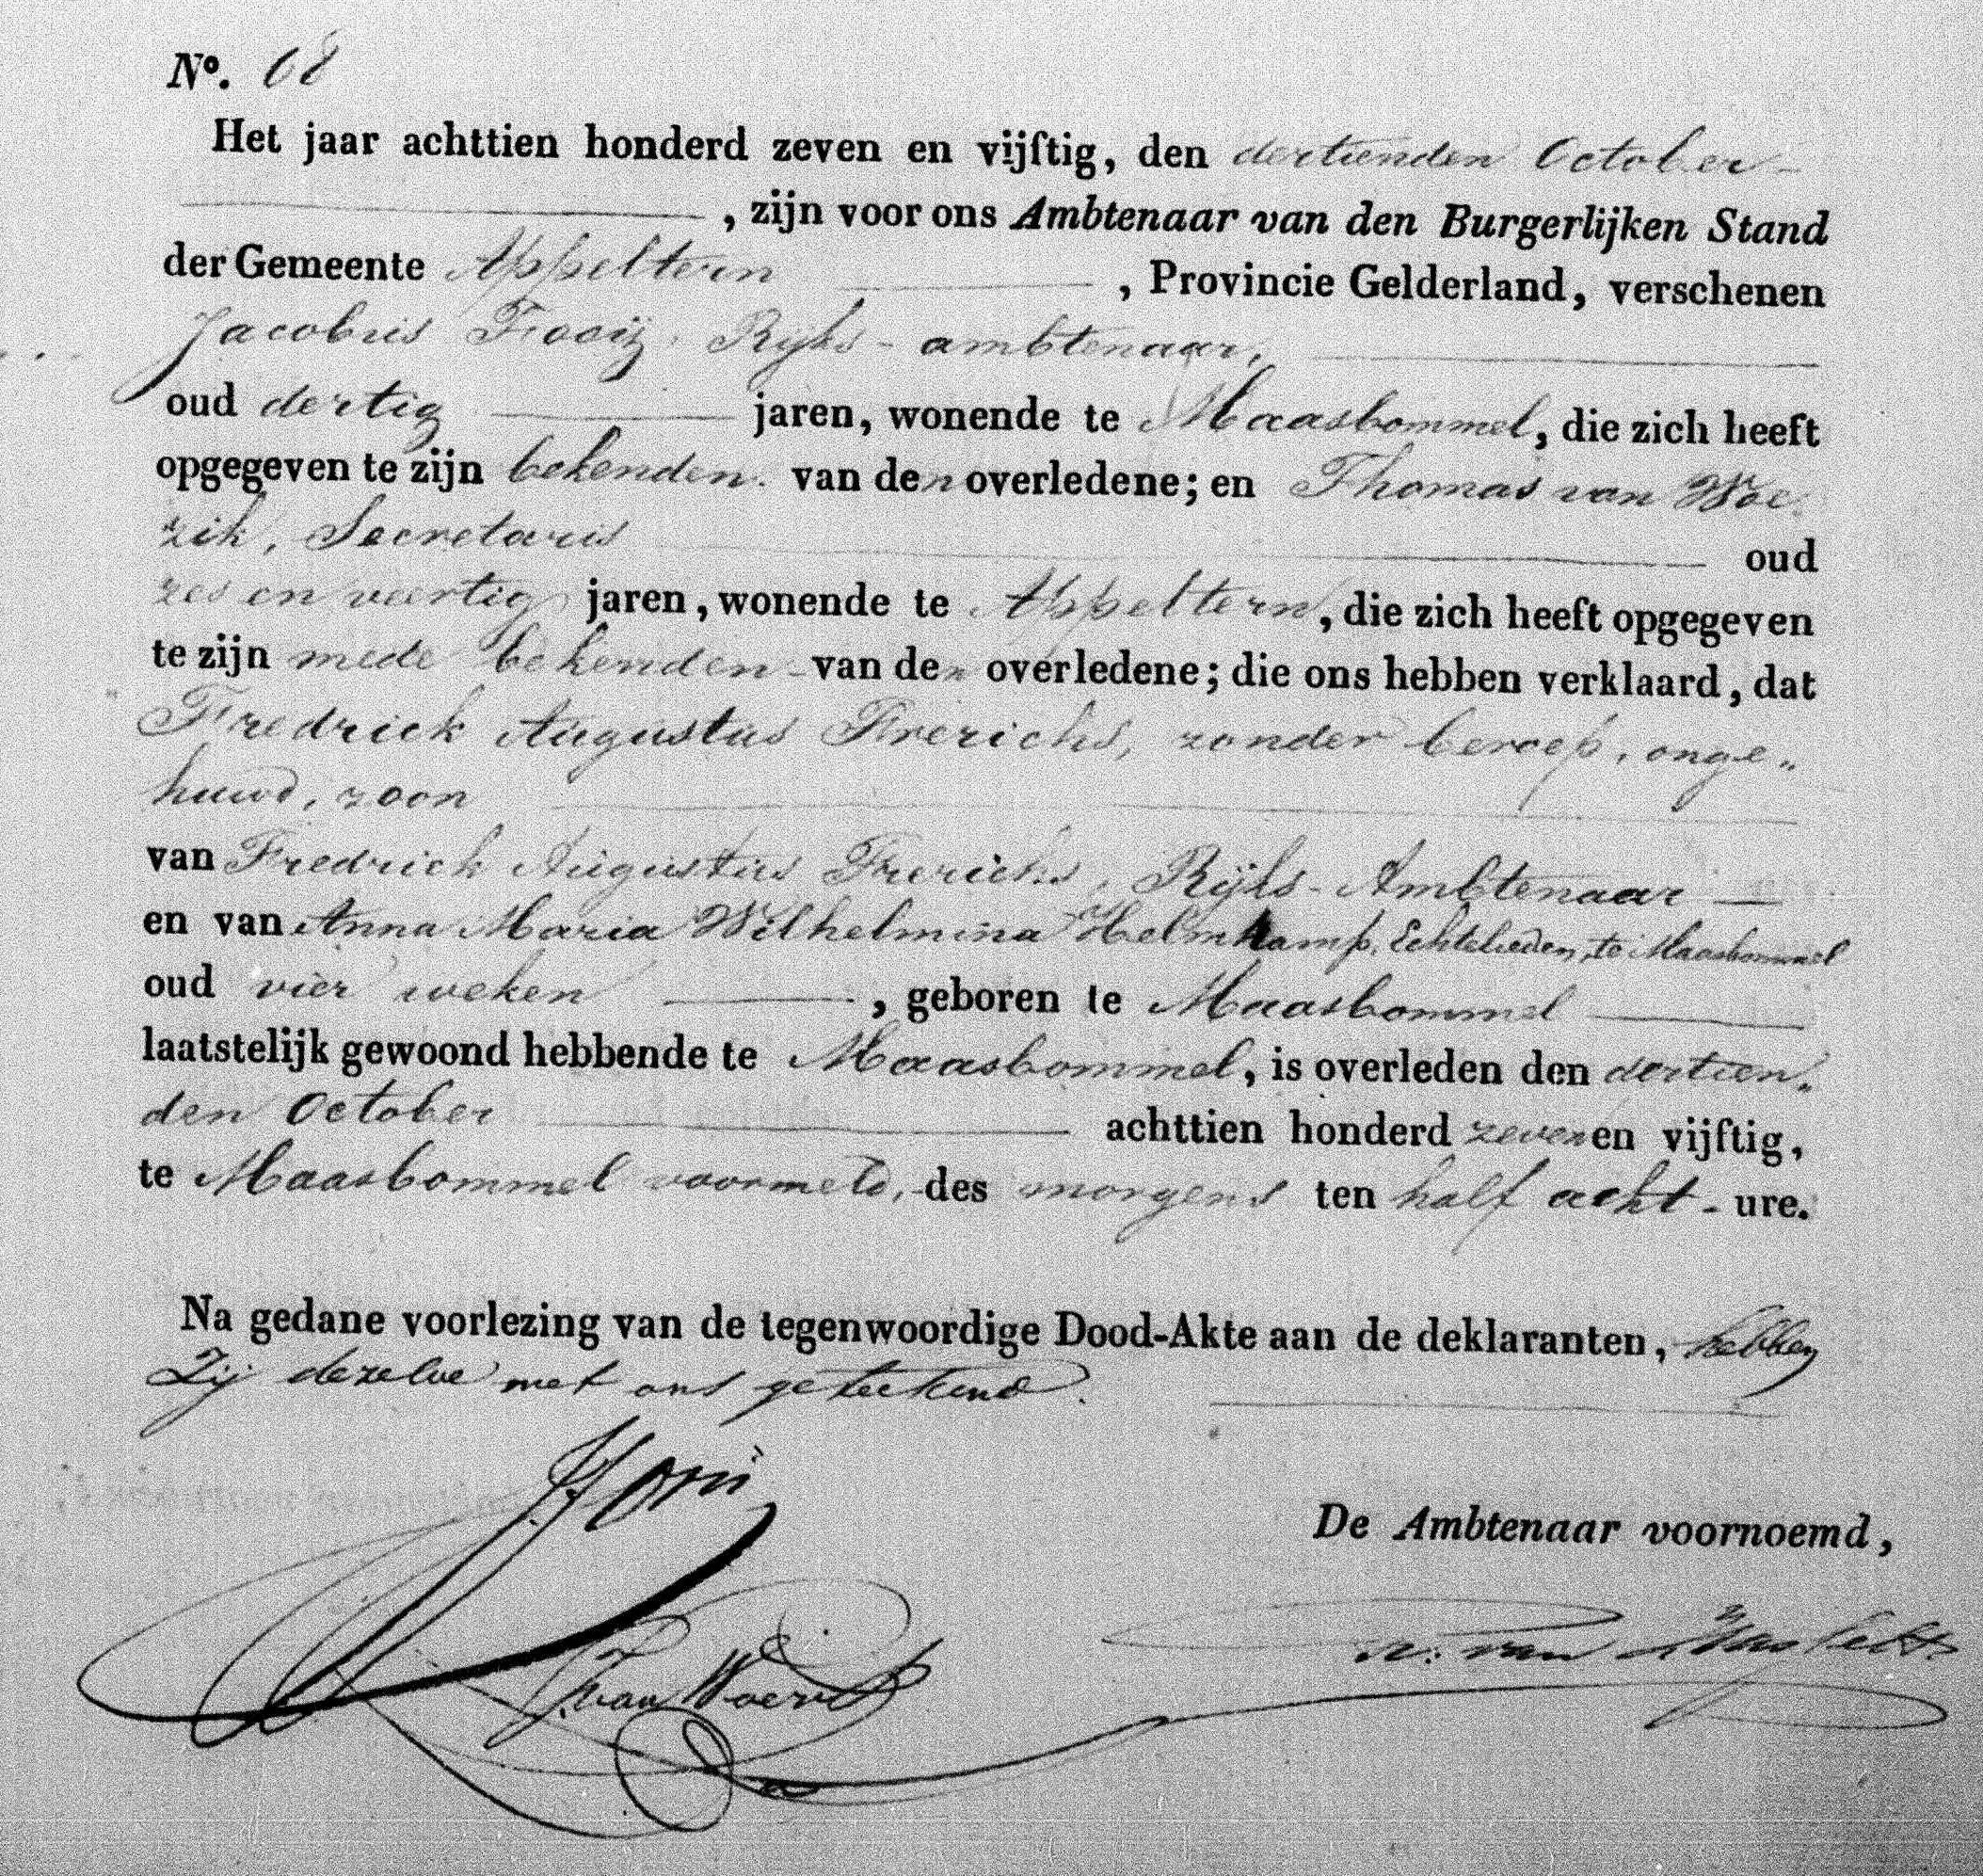 Nº. 68
Het jaar achttien honderd zeven en vijftig, den dertienden October
, zijn voor ons Ambtenaar van den Burgerlijken Stand
der Gemeente Appeltern , Provincie Gelderland, verschenen
Jacobus Fooij, Rijks-ambtenaar,
oud dertig jaren, wonende te Maasbommel, die zich heeft
opgegeven te zijn bekenden van den overledene; en Thomas van Woe
zik, Secretaris oud
zes en veertig jaren, wonende te Appeltern, die zich heeft opgegeven
te zijn mede bekenden van den overledene; die ons hebben verklaard, dat
Fredrick Augustus Frerichs, zonder beroep, onge„
huwd, zoon
van Fredrick Augustus Frerichs, Rijks-Ambtenaar
en van Anna Maria Wilhelmina Helmkamp, Echtelieden, te Maasbommel
oud vier weken , geboren te Maasbommel
laatstelijk gewoond hebbende te Maasbommel, is overleden den dertien„
den October achttien honderd zeven en vijftig,
te Maasbommel voormeld, des morgens ten half acht ure.
Na gedane voorlezing van de tegenwoordige Dood-Akte aan de deklaranten, hebben
zij dezelve met ons geteekend.
De Ambtenaar voornoemd,
van